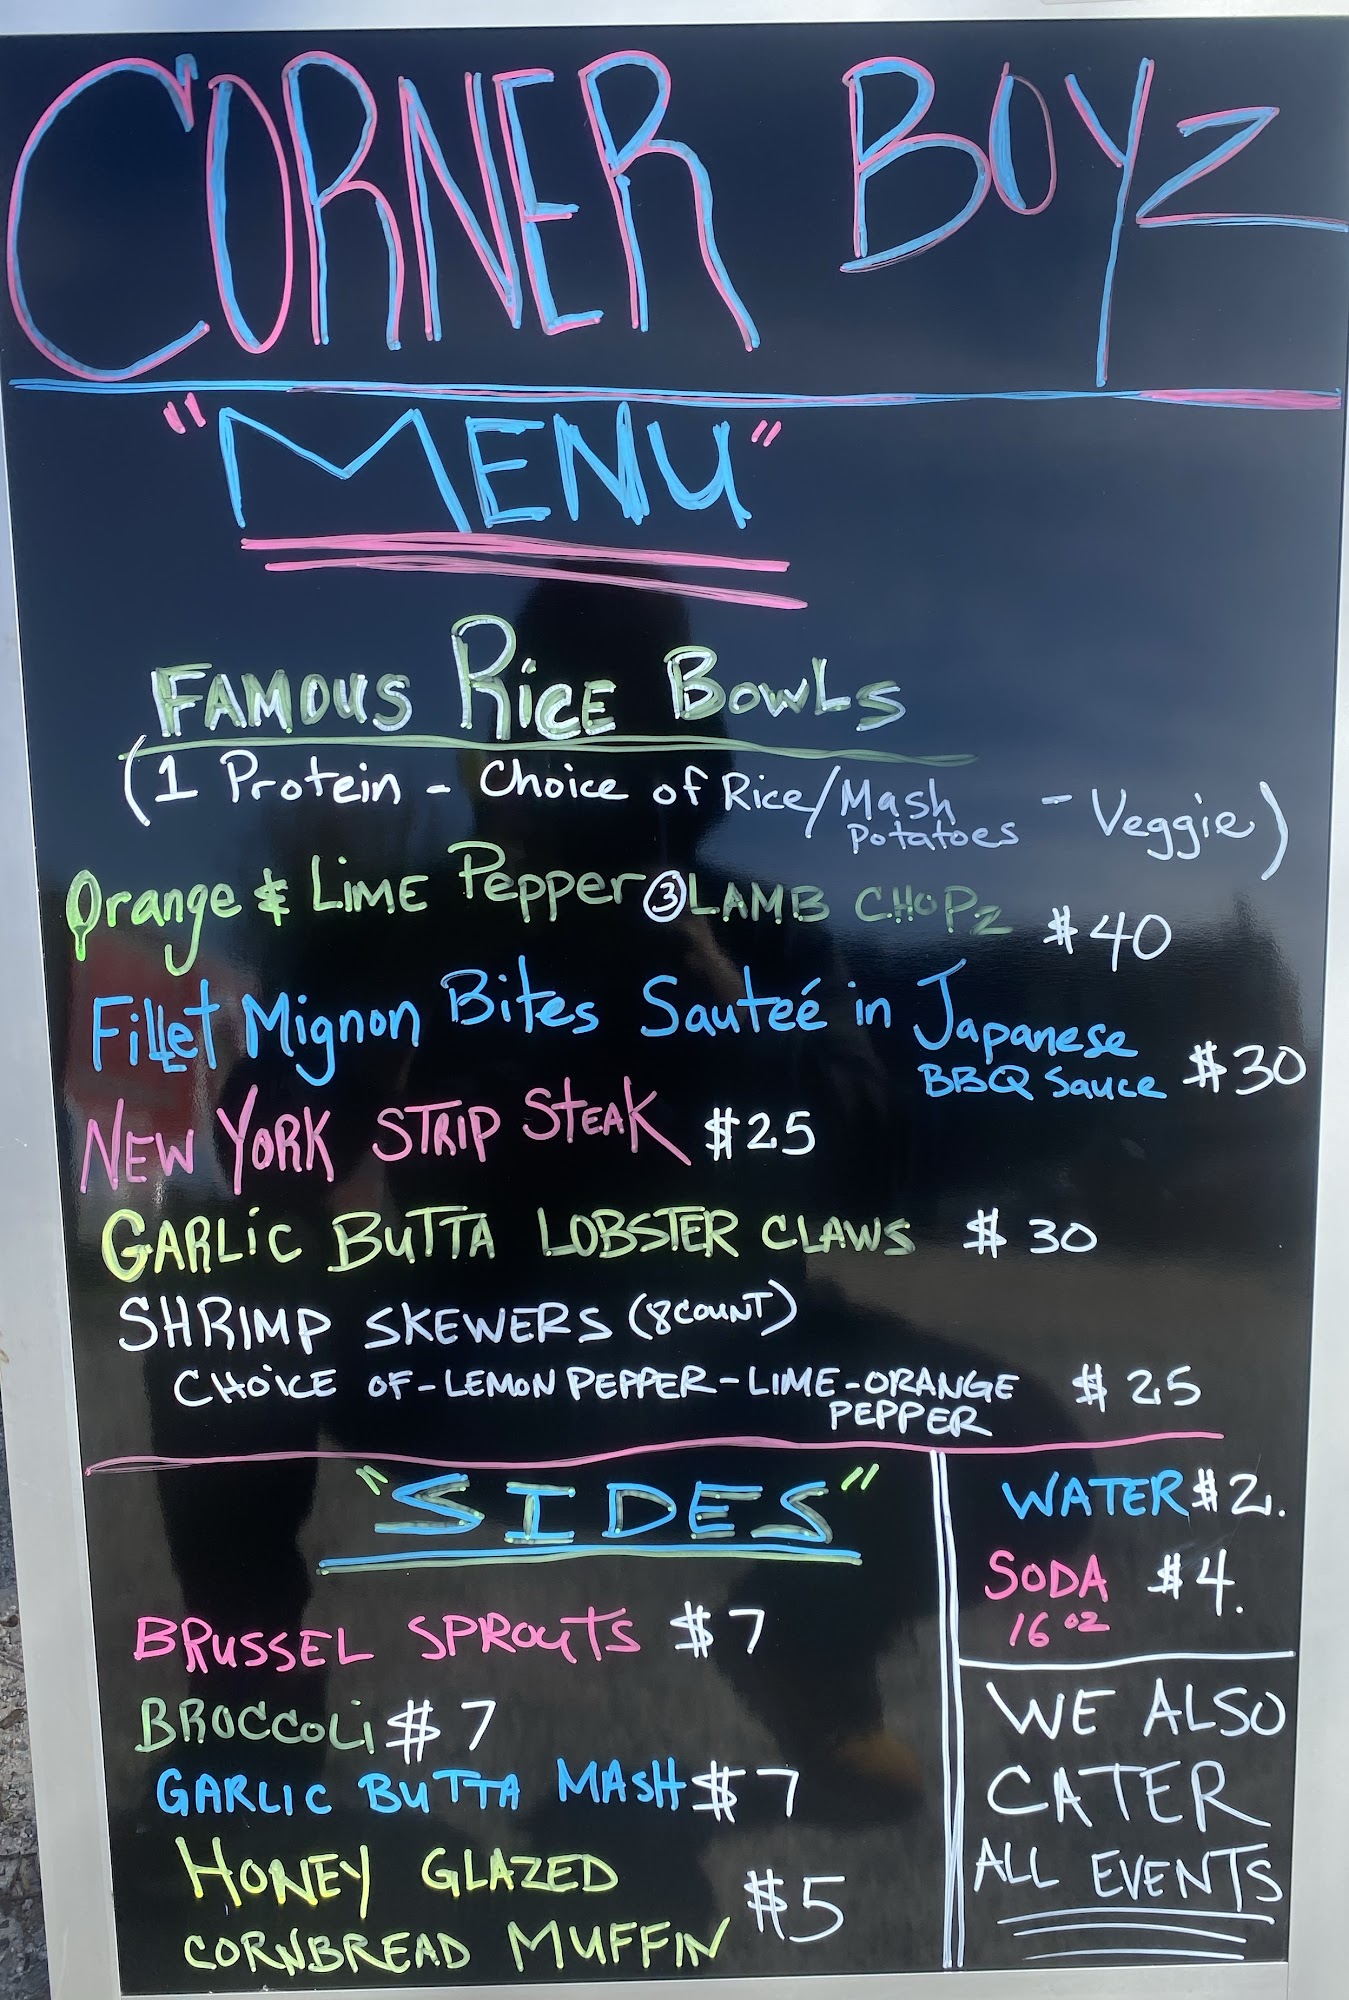 CORNER BOYZ
"MENU"
FAMOUS RICE BOWLS
(1 Protein - Choice of Rice/Mash Potatoes - Veggie)
Orange & LIME Pepper ③ LAMB CHOPz $40
Fillet Mignon Bites Sauteé in Japanese
BBQ Sauce $30
NEW YORK STRIP STEAK $25
GARLIC BUTTA LOBSTER CLAWS $30
SHRIMP SKEWERS (8 COUNT)
CHOICE OF - LEMON PEPPER - LIME - ORANGE PEPPER $25
"SIDES"
BRUSSEL SPROUTS $7
BROCCOLI $7
GARLIC BUTTA MASH $7
HONEY GLAZED
CORNBREAD MUFFIN $5
WATER $2.
SODA $4.
16 oz
WE ALSO
CATER
ALL EVENTS